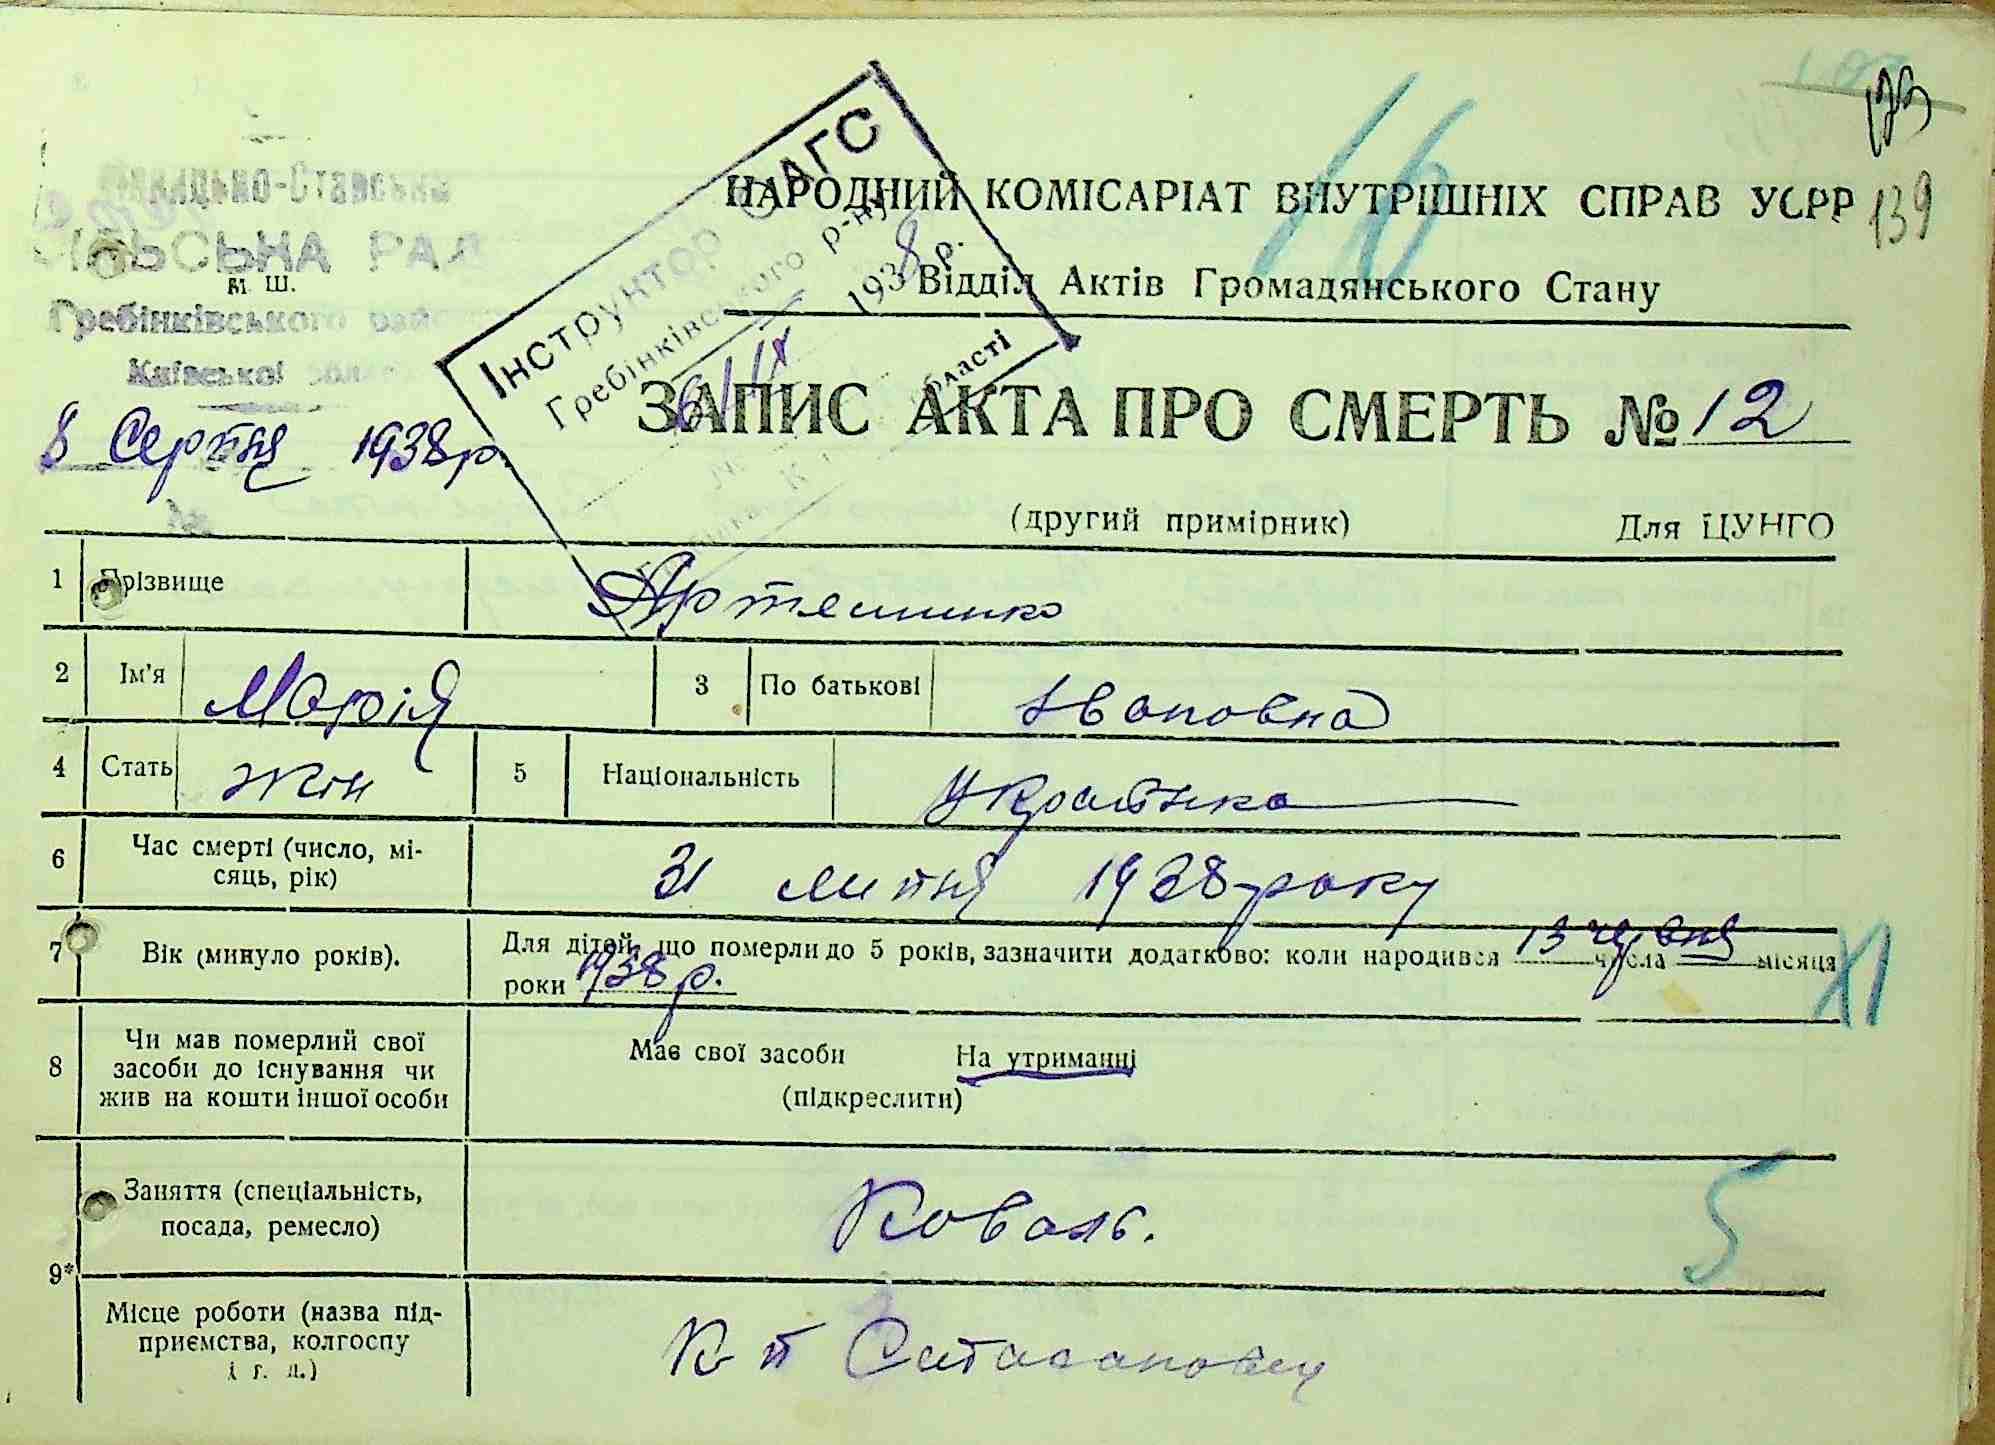 139
НАРОДНИЙ КОМІСАРІАТ ВНУТРІШНІХ СПРАВ УСРР
Відділ Актів Громадянського Стану
СІЛЬСЬКА РАДА
м. ш.
Гребінківського рай
Київської обл
8 Серпня 1938 р.
Інструктор ЗАГС
Гребінківського р-ну
6/IX 1938 р.
області
ЗАПИС АКТА ПРО СМЕРТЬ № 12
(другий примірник) Для ЦУНГО
16
1 Прізвище Артеменко
2 Ім'я Марія 3 По батькові Івановна
4 Стать жін 5 Національність Українка
6 Час смерті (число, мі-
сяць, рік) 31 липня 1938 року
7 Вік (минуло років). Для дітей, що померли до 5 років, зазначити додатково: коли народився 13 числа червня місяця
роки 1938 р.
XI
8 Чи мав померлий свої
засоби до існування чи
жив на кошти іншої особи
Має свої засоби На утриманні
(підкреслити)
9* Заняття (спеціальність,
посада, ремесло) Коваль.
5
Місце роботи (назва під-
приємства, колгоспу
і т. д.)
К-п